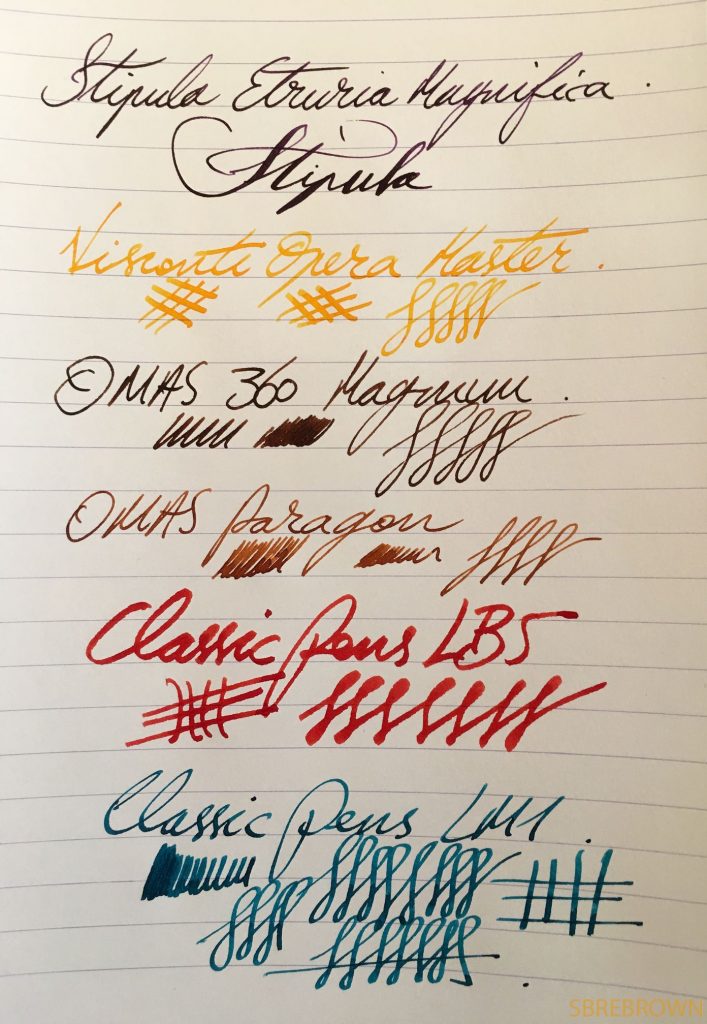 Stipula Etruria Magnifica.
Stipula
Visconti Opera Master.
OMAS 360 Magnum.
OMAS Paragon
Classic Pens LB5
Classic Pens LM1.
SBREBROWN